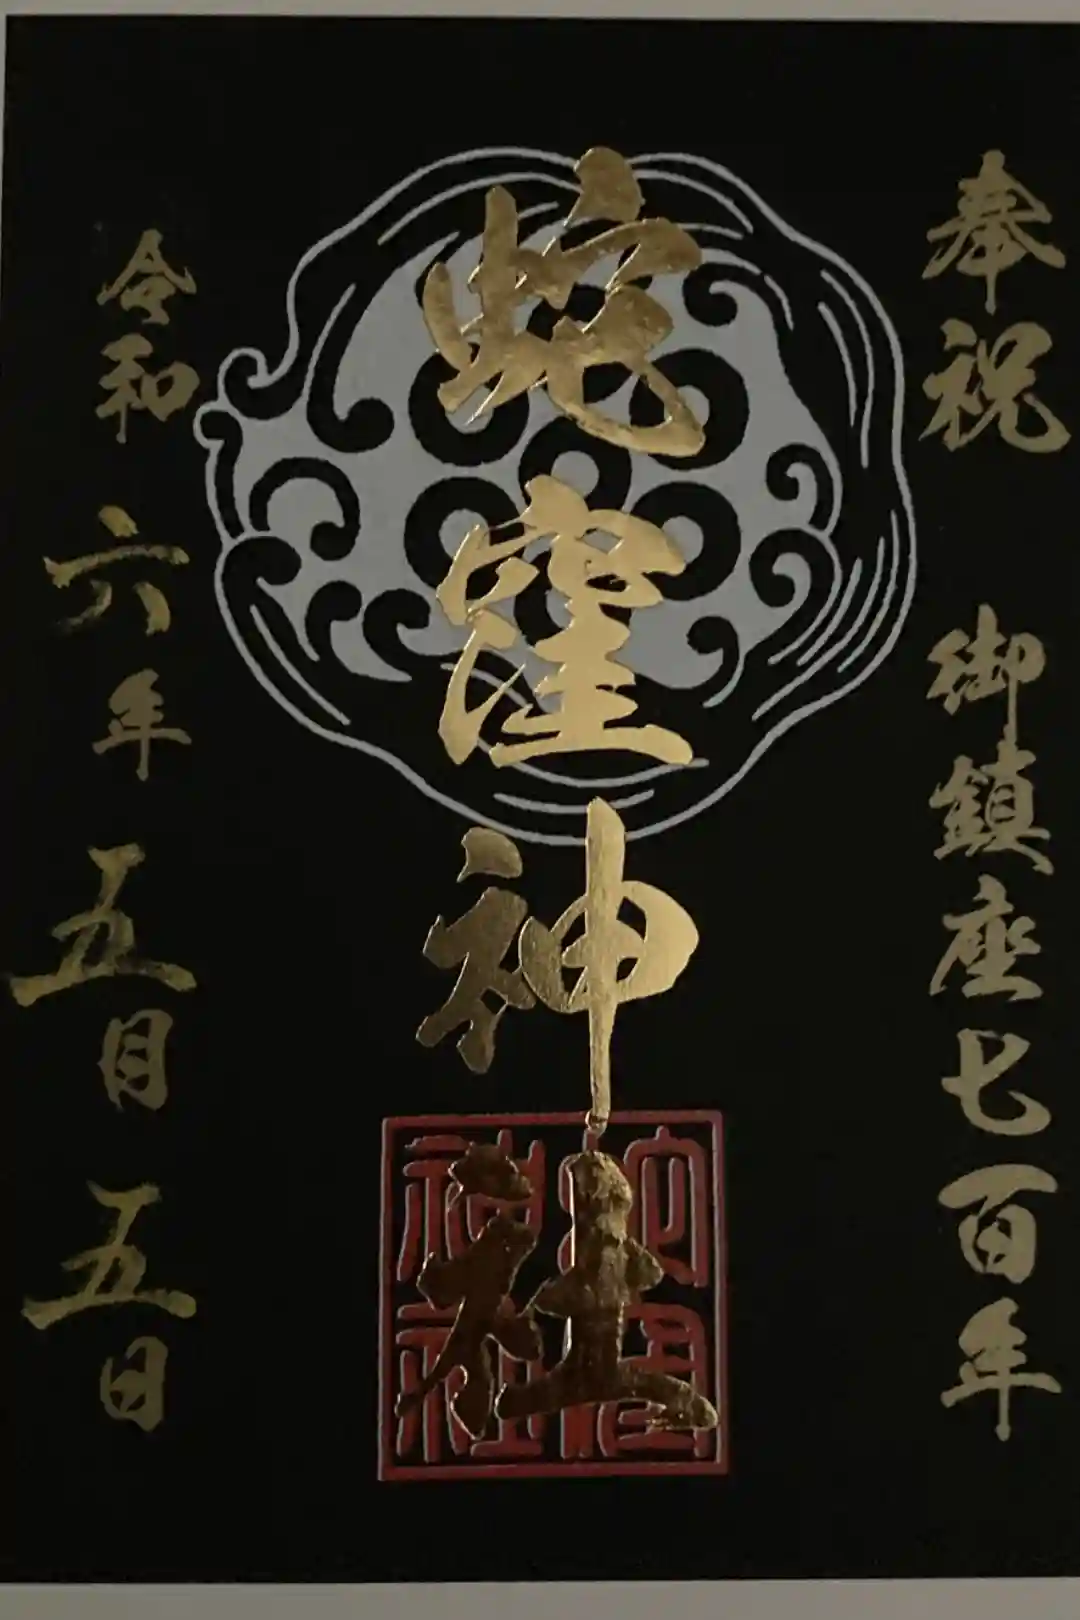 奉祝 御鎮座七百年
蛇窪神社
蛇窪神社
令和六年五月五日